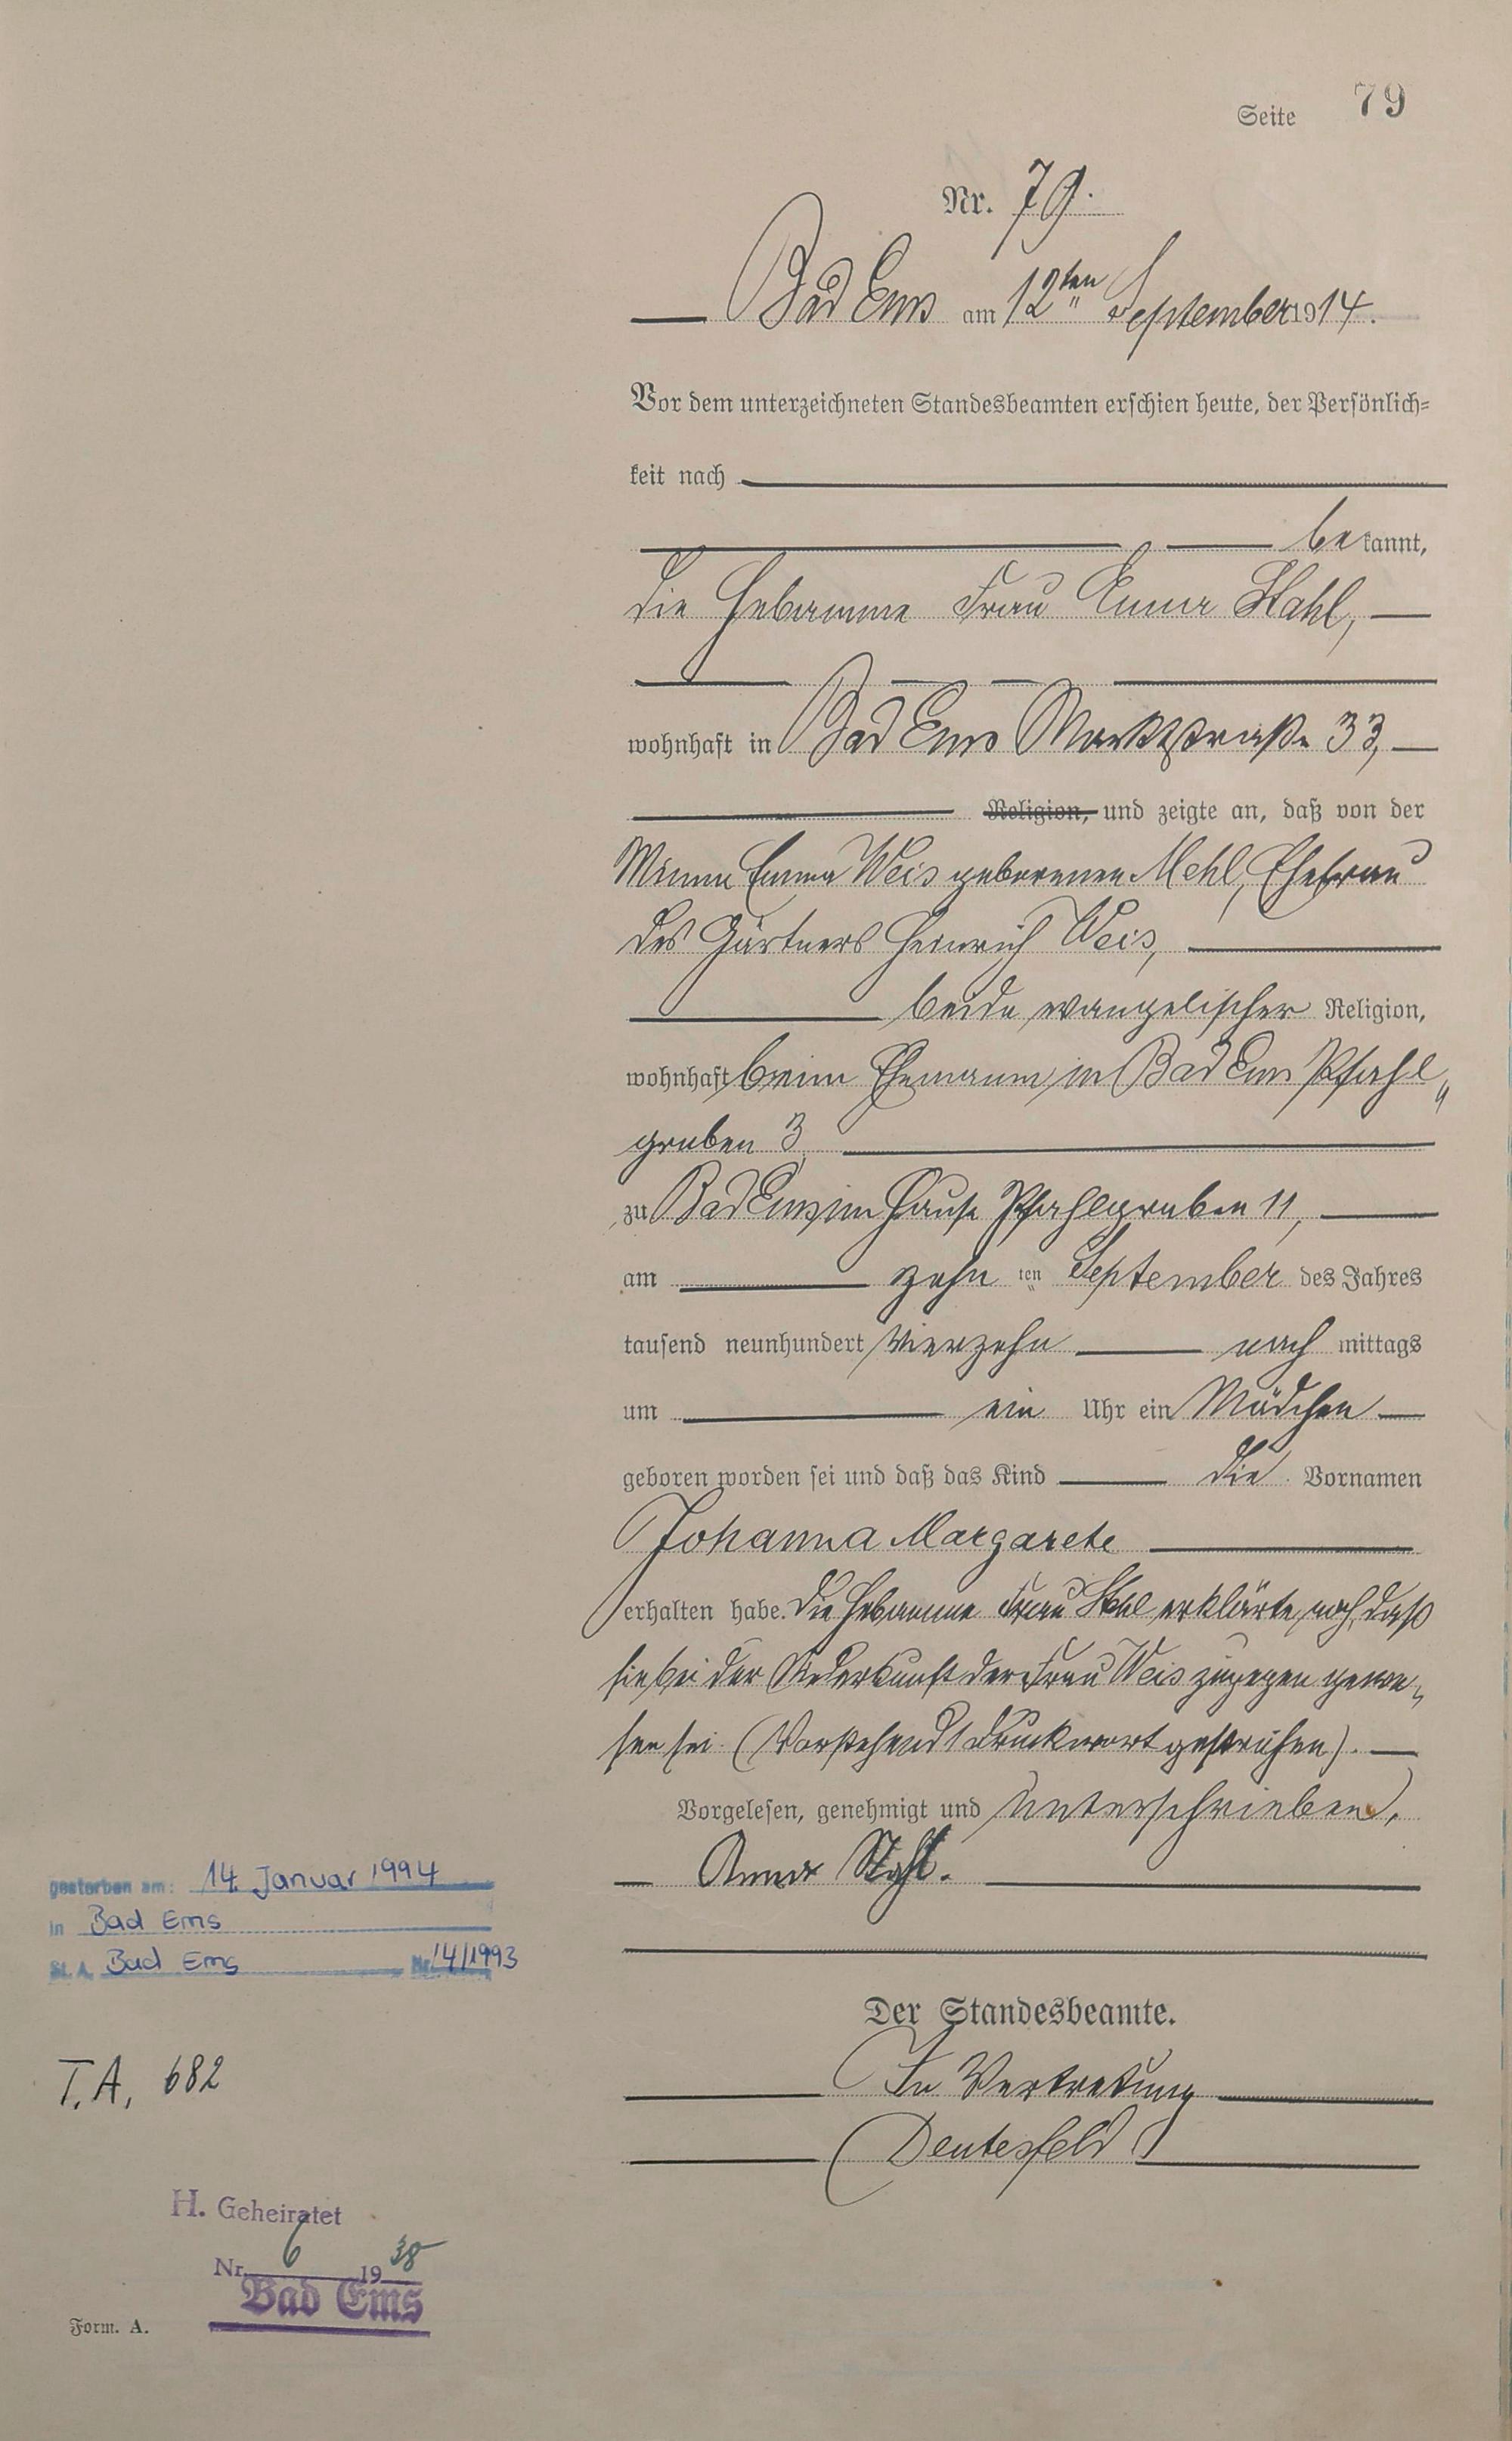 Seite 79
Nr. 79.
Bad Ems am 12ten September 1914.
Vor dem unterzeichneten Standesbeamten erschien heute, der Persönlich=
keit nach
bekannt,
die Hebamme Frau Anna Stahl,
wohnhaft in Bad Ems Marktstraße 33,
Religion, und zeigte an, daß von der
Minna Emma Weis geborenen Mehl, Ehefrau
des Gärtners Heinrich Weis,
beide evangelischer Religion,
wohnhaft beim Ehemann in Bad Ems Pfahl„
graben 3,
zu Bad Ems im Hause Pfahlgraben 11,
am zehn ten September des Jahres
tausend neunhundert vierzehn nach mittags
um ein Uhr ein Mädchen
geboren worden sei und daß das Kind die Vornamen
Johanna Margarete
erhalten habe. Die Hebamme Frau Stahl erklärte noch, daß
sie bei der Niederkunft der Frau Weis zugegen gewe„
sen sei. (Vorstehend 1 Druckwort gestrichen).
Vorgelesen, genehmigt und unterschrieben.
Anna Stahl.
gestorben am: 14. Januar 1994
in Bad Ems
St. A. Bad Ems Nr. 14/1993
Der Standesbeamte.
In Vertretung
T.A. 682
H. Geheiratet
Nr. 6 1938
Bad Ems
Form. A.